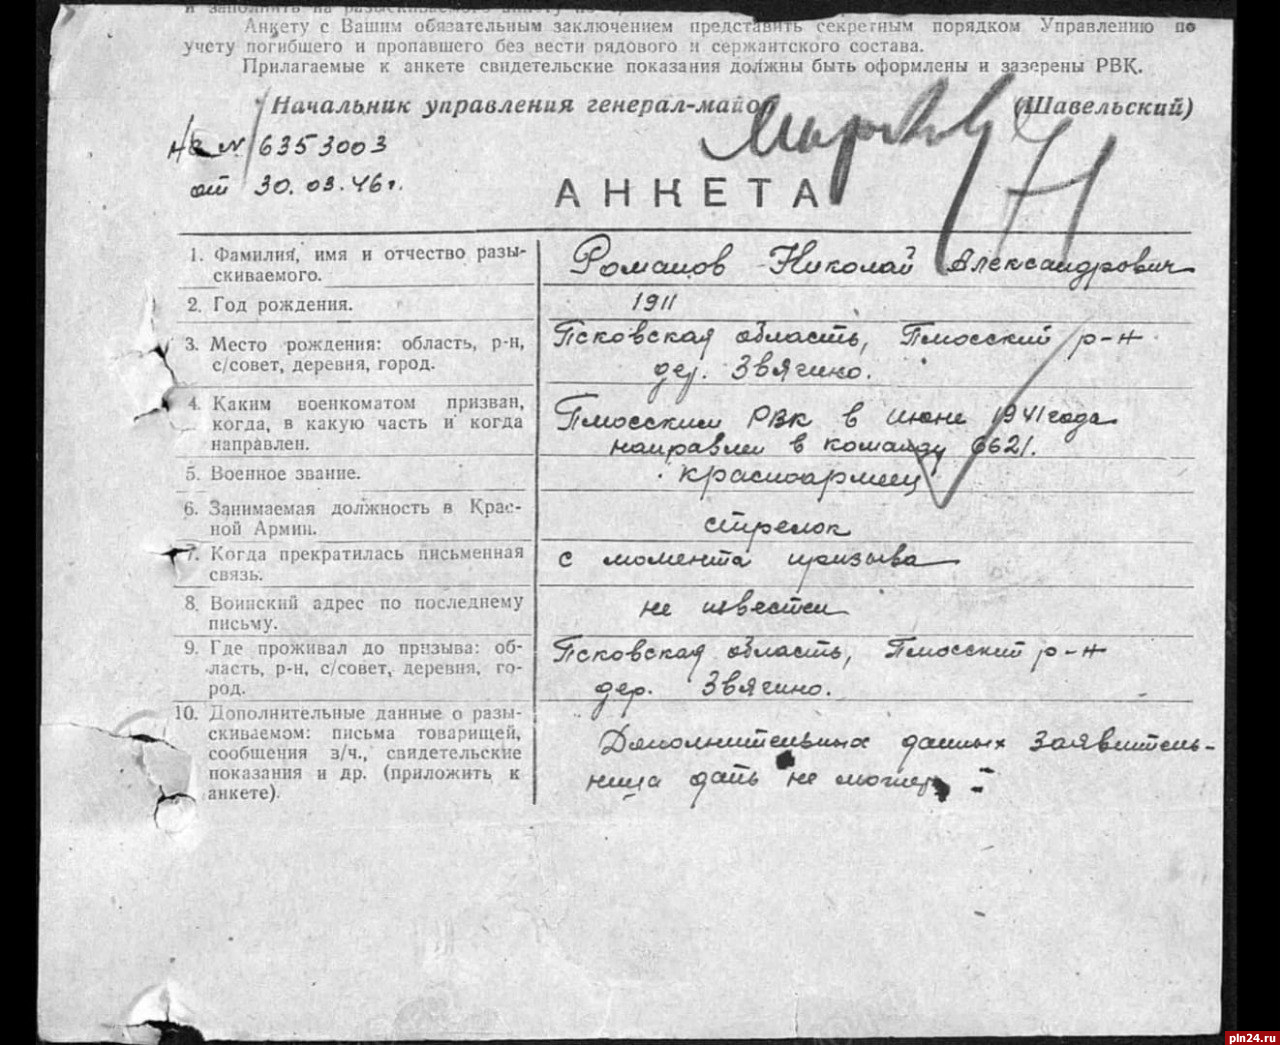 Анкету с Вашим обязательным заключением представить секретным порядком Управлению по
учету погибшего и пропавшего без вести рядового и сержантского состава.
Прилагаемые к анкете свидетельские показания должны быть оформлены и заверены РВК.
Начальник управления генерал-майор (Шавельский)
На № 6353003
от 30.03.46г.
АНКЕТА
1. Фамилия, имя и отчество разы-
скиваемого.
Романов Николай Александрович
2. Год рождения.
1911
3. Место рождения: область, р-н,
с/совет, деревня, город.
Псковская область, Плюсский р-н
дер. Звягино.
4. Каким военкоматом призван,
когда, в какую часть и когда
направлен.
Плюсским РВК в июне 1941 года
направлен в команду 6621.
5. Военное звание.
красноармеец
6. Занимаемая должность в Крас-
ной Армии.
стрелок
7. Когда прекратилась письменная
связь.
с момента призыва
8. Воинский адрес по последнему
письму.
не известен
9. Где проживал до призыва: об-
ласть, р-н, с/совет, деревня, го-
род.
Псковская область, Плюсский р-н
дер. Звягино.
10. Дополнительные данные о разы-
скиваемом: письма товарищей,
сообщения в/ч., свидетельские
показания и др. (приложить к
анкете).
Дополнительных данных заявитель-
ница дать не может
pln24.ru